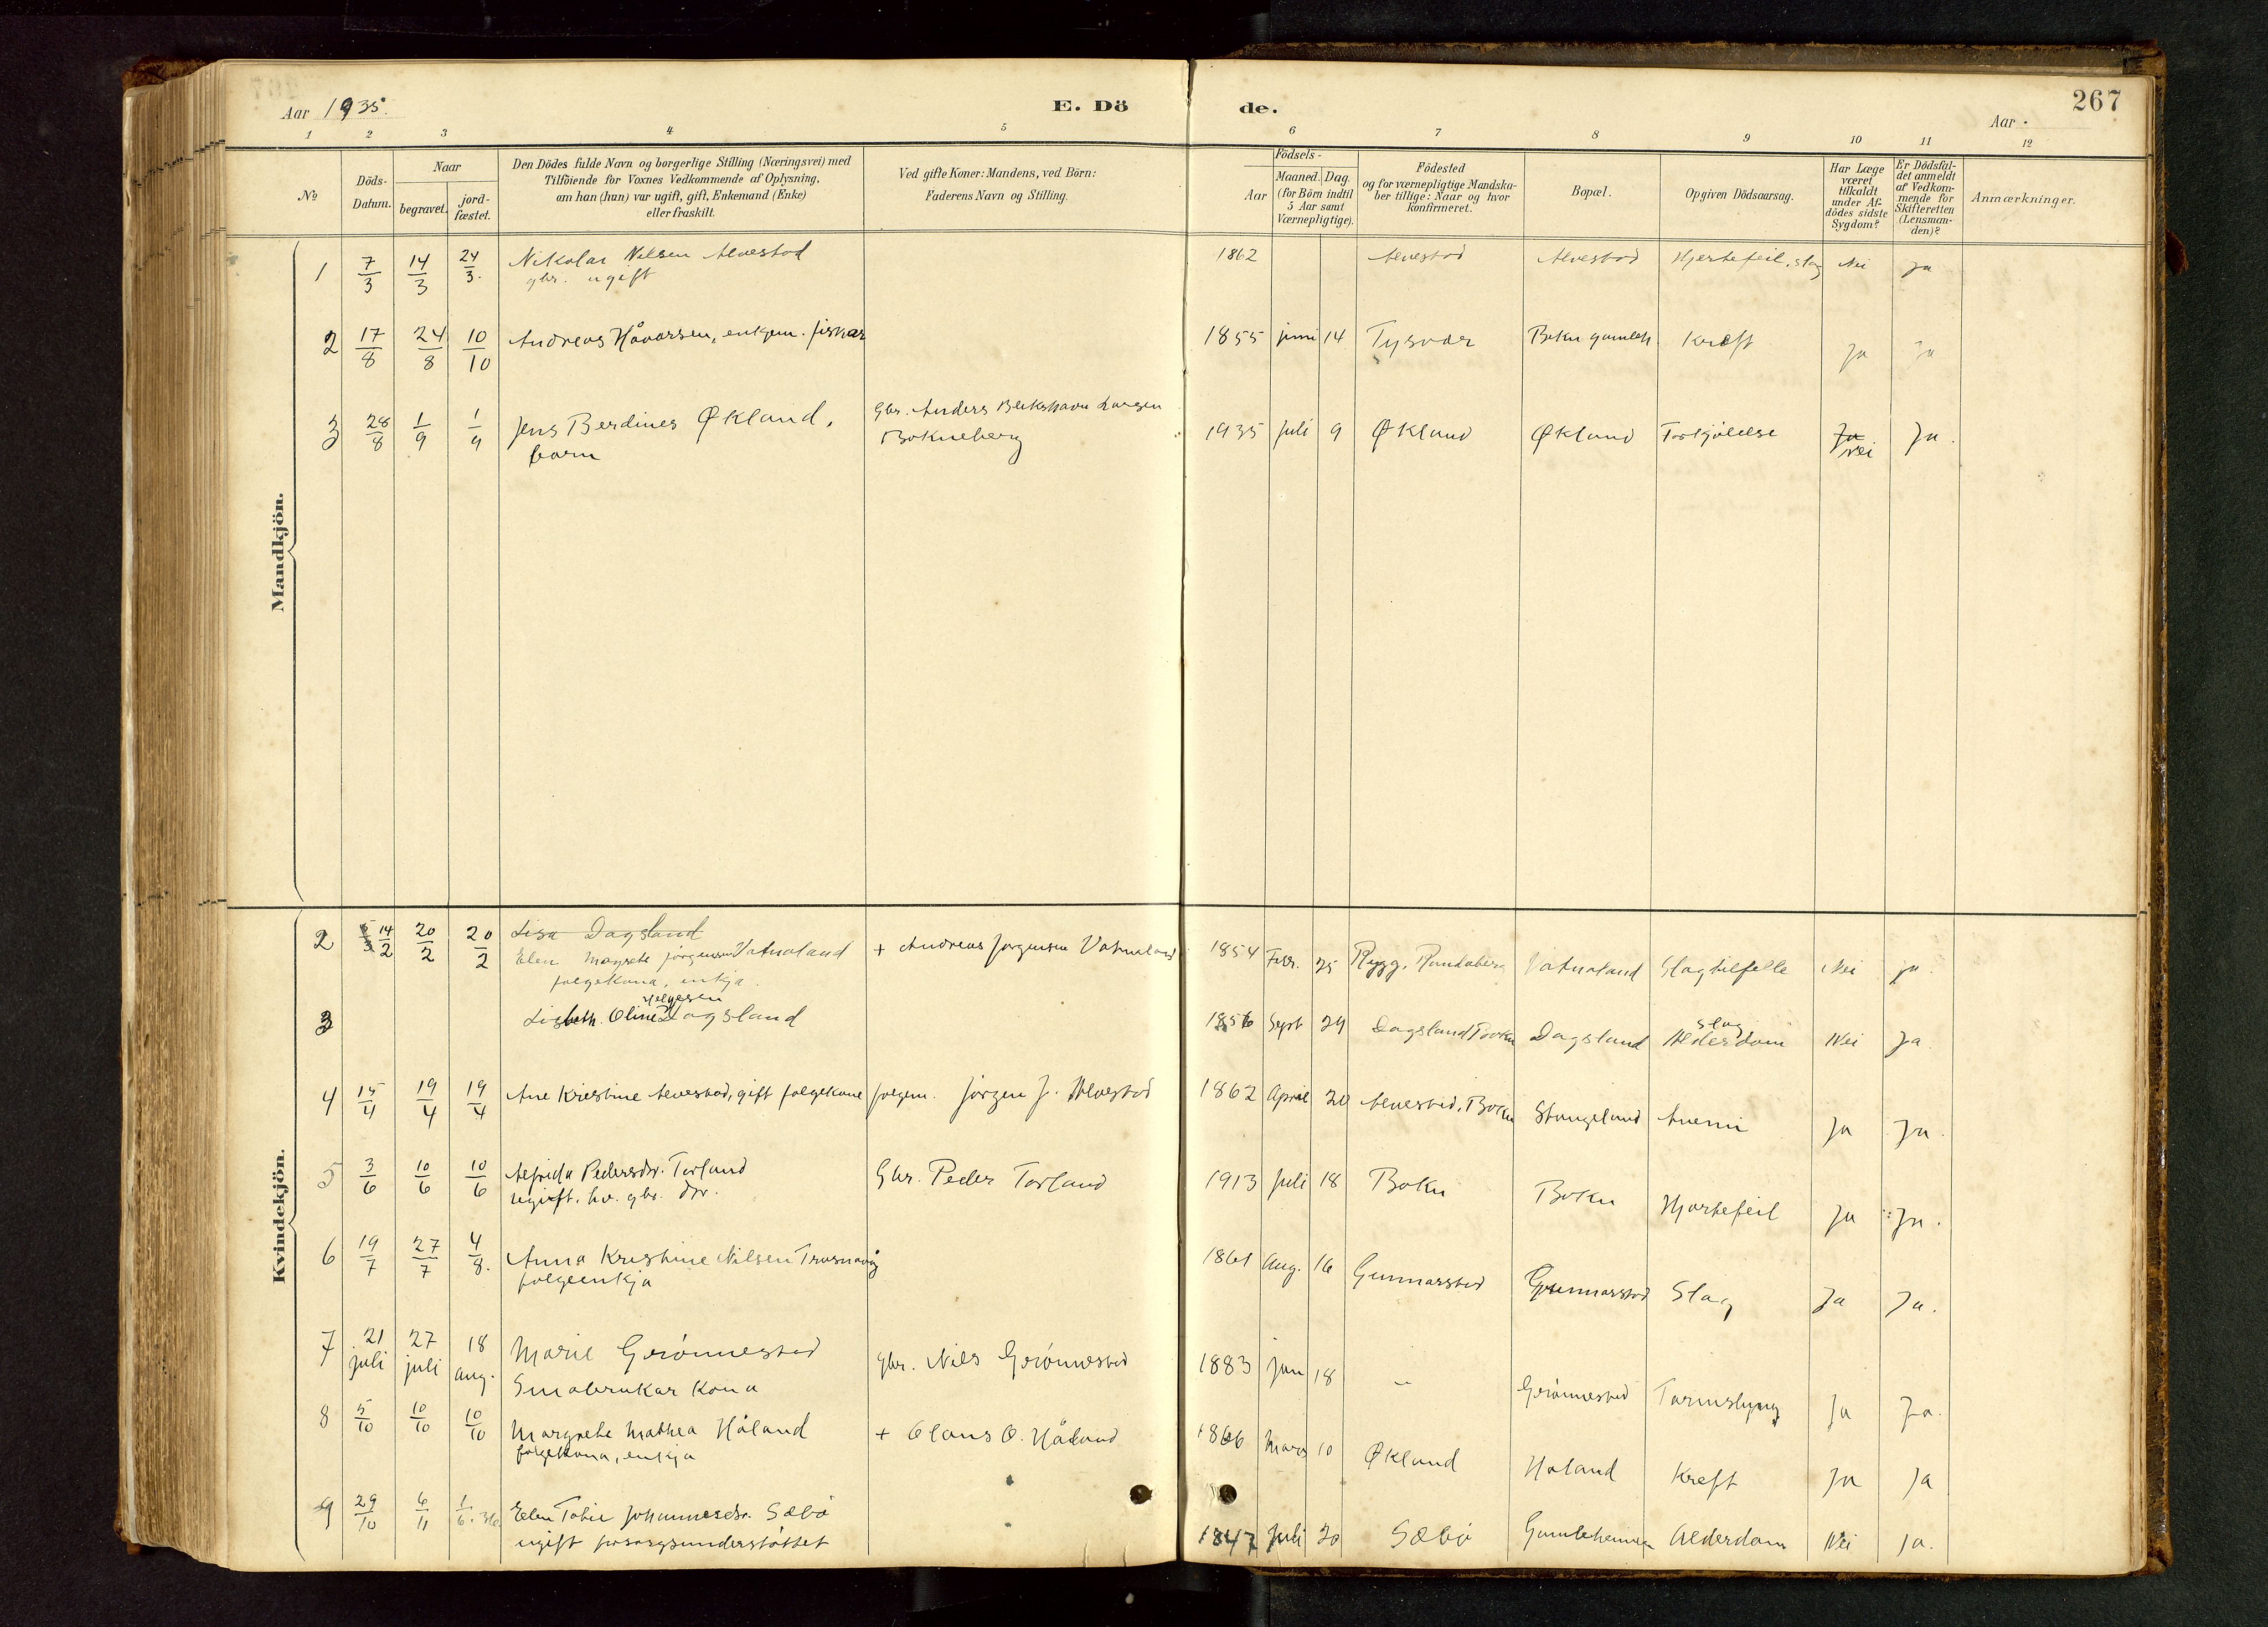 267
Aar 1935.
E. Dö
de.
Aar
1 2 3 4 5 6 7 8 9 10 11 12
No
Döds-Datum.
Naar
begravet.
jord-fæstet.
Den Dödes fulde Navn og borgerlige Stilling (Næringsvei) med
Tilföiende for Voxnes Vedkommende af Oplysning,
om han (hun) var ugift, gift, Enkemand (Enke)
eller fraskilt.
Ved gifte Koner: Mandens, ved Börn:
Faderens Navn og Stilling.
Födsels-
Aar
Maaned. Dag.
(for Börn indtil
5 Aar samt
Værnepligtige).
Födested
og for værnepligtige Mandska-
ber tillige: Naar og hvor
konfirmeret.
Bopæl.
Opgiven Dödsaarsag.
Har Læge
været
tilkaldt
under Af-
dödes sidste
Sygdom?
Er Dödsfal-
det anmeldt
af Vedkom-
mende for
Skifteretten
(Lensman-
den)?
Anmærkninger.
Mandkjön.
1 7/3 14/3 24/3. Nikolai Nilsen Alvestad 1862 Alvestad Alvestad Hjertefeil, slag Nei Ja
gbr. ugift
2 17/8 24/8 10/10 Andreas Håvarsen, enkjem. fiskar 1855 juni 14 Tysvær Bokn gamleh Kreft Ja Ja
3 28/8 1/9 1/9 Jens Berdines Økland, Gbr. Anders Larsen 1935 Juli 9 Økland Økland Forkjølelse Ja Ja.
barn Bokneberg nei
Kvindekjön.
2 14/2 20/2 20/2 Lisa Dagsland
Elen Margrete Jørgensen Vatnaland + Andreas Jørgensen Vatnaland 1854 Febr. 25 Rygg, Randaberg Vatnaland Slagtilfelle Nei ja.
folgekona, enkja.
Helgesen
3 Lisbeth. Oline Dagsland 1856 Sept 24 Dagsland Bokn Dagsland Alderdom Nei Ja.
slag
4 15/4 19/4 19/4 Ane Kristine Alvestad, gift folgekone folgem. Jørgen J. Alvestad 1862 April 20 Alvestad, Bokn Stangeland Anemi Ja Ja.
5 3/6 10/6 10/6 Alfrida Pedersdr. Torland Gbr. Peder Torland 1913 Juli 18 Bokn Bokn Hjartefeil Ja Ja.
ugift. hv. gbr. dtr.
6 19/7 27/7 4/8. Anna Kristine Nilsen Trosnavåg 1861 Aug. 16 Gunnarstad Gunnarstad Slag Ja Ja.
folgeenkja
7 21 juli 27 juli 18 aug. Marie Grønnestad gbr. Nils Grønnestad 1883 Jan 18 – Grønnestad Tarmslyng Ja Ja.
Småbrukar kona
8 5/10 10/10 10/10 Margrete Mathea Håland + Olaus O. Håland 1866 Mars 10 Økland Håland Kreft Ja Ja
folgekona, enkja
9 29/10 6/11 1/6.36 Elen Tobie Johannesdr. Sæbø 1847 Juli 20 Sæbø Gamleheimen Alderdom Nei Ja.
ugift forsorgsunderstøttet